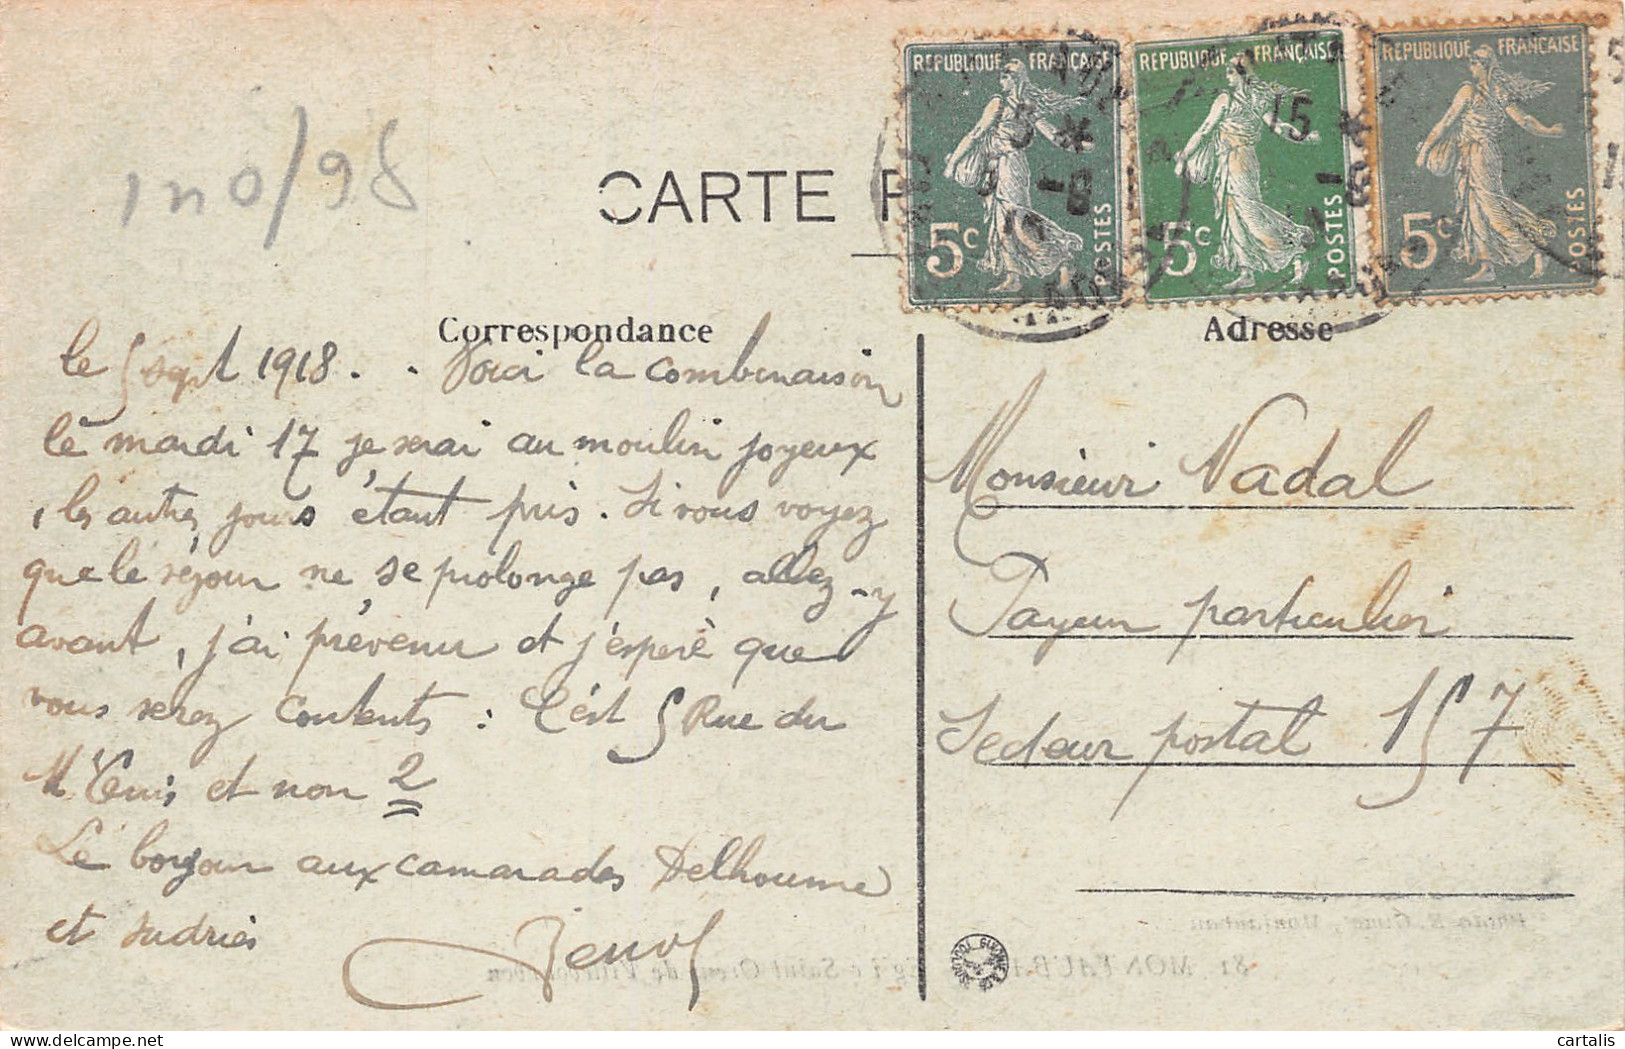 1n0/98
REPUBLIQUE FRANÇAISE
5c
POSTES
REPUBLIQUE FRANÇAISE
15
5c
POSTES
REPUBLIQUE FRANÇAISE
5c
POSTES
CARTE P
Correspondance
le 5 sept 1918 . . Voici la combinaison
le mardi 17 je serai au moulin joyeux
, les autres jours étant pris. Si vous voyez
que le séjour ne se prolonge pas, allez-y
avant, j'ai prévenu et j'espère que
vous serez contents : C'est 5 Rue du
et non 2
Le bonjour aux camarades Delhoume
et Sudriès
Adresse
Monsieur Nadal
Payeur particulier
Secteur postal 157
81. MONTAUBAN
cartalis